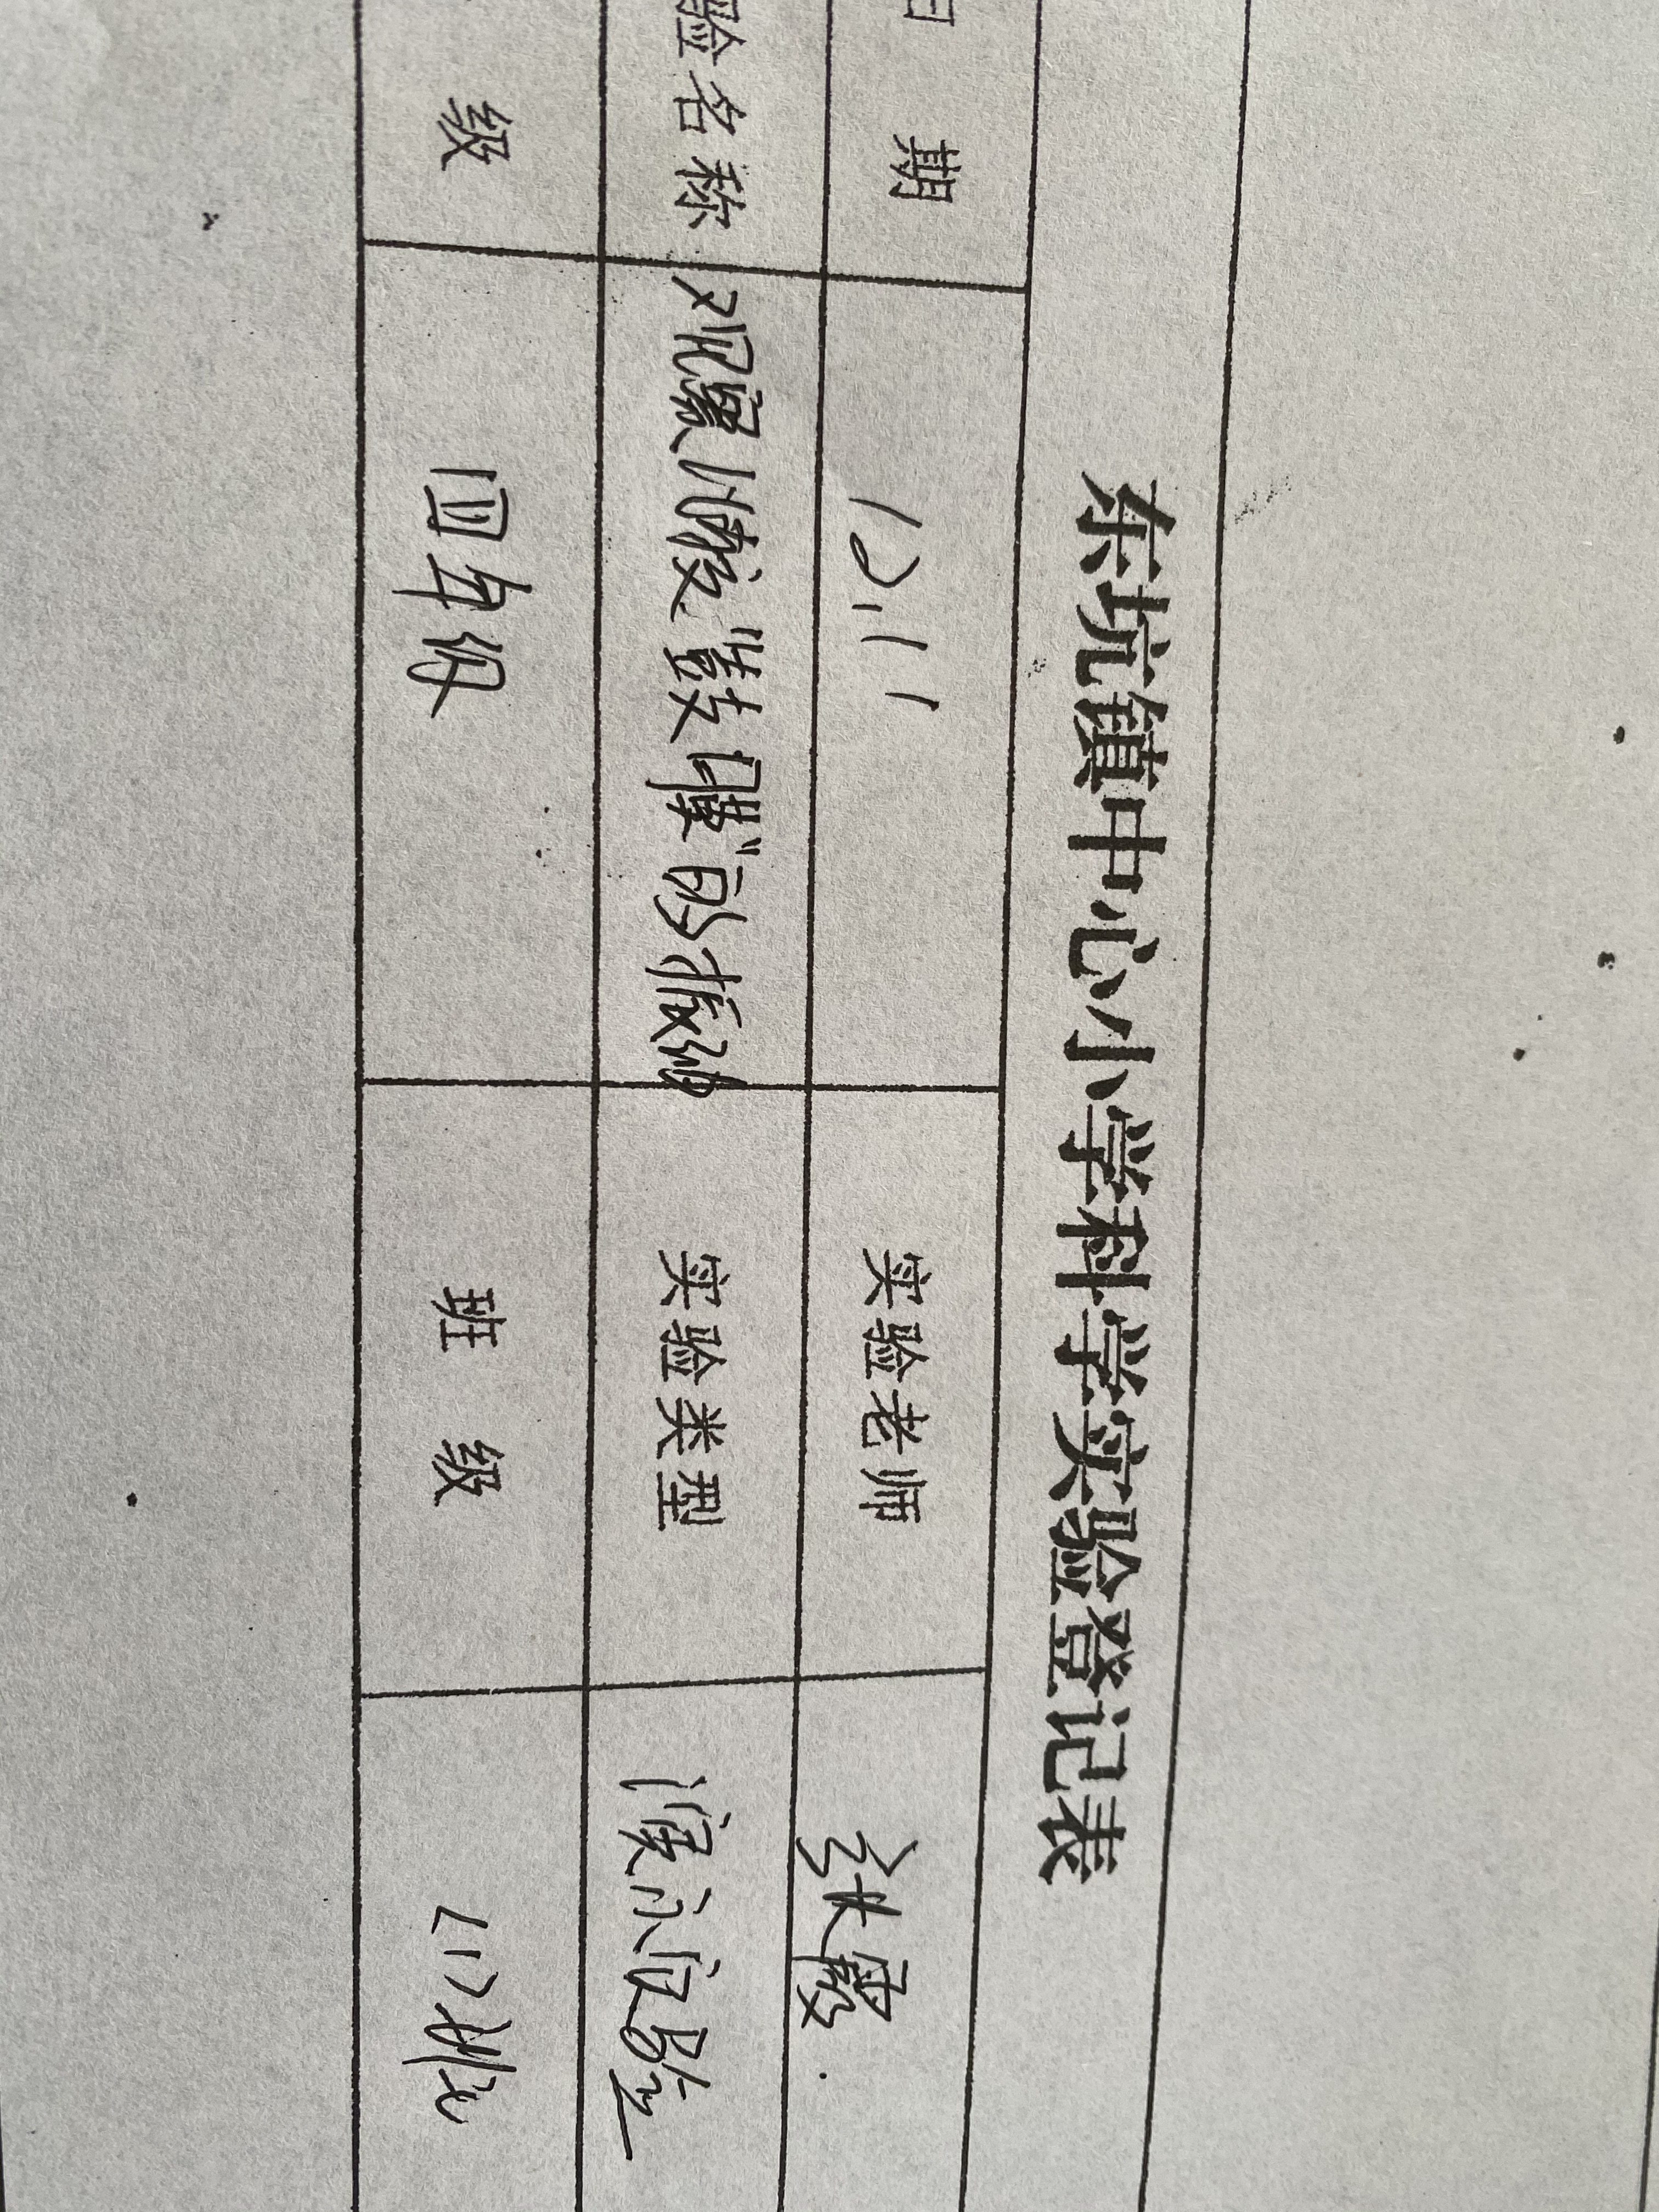 东坑镇中心小学科学实验登记表
日 期 12.11 实验老师 张霞
验名称 观察、感受"鼓膜"的振动 实验类型 演示实验
级 四年级 班 级 (1)班